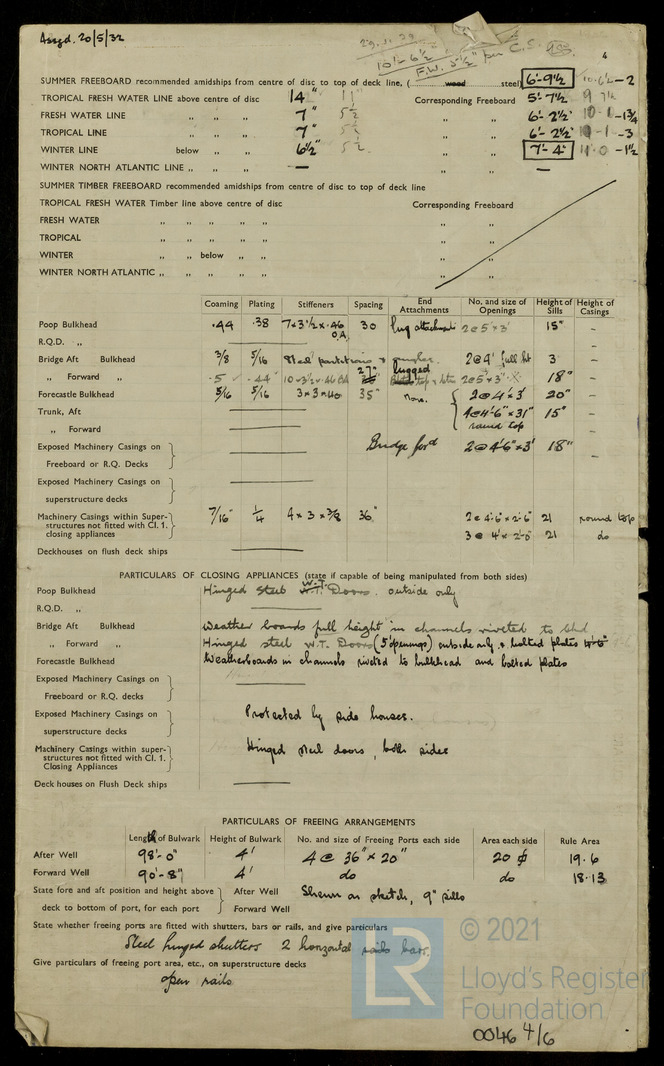 Assgd. 20/5/32
29.3.39
10'-6½" per C.S.
F.W. 5½"
4
SUMMER FREEBOARD recommended amidships from centre of disc to top of deck line, ( wood steel) 6'-9½ 10.6½-2
TROPICAL FRESH WATER LINE above centre of disc 14" 11" Corresponding Freeboard 5'-7½ 9 7½
FRESH WATER LINE ,, ,, 7" 5½ ,, 6'-2½' 10-1-1¾
TROPICAL LINE ,, ,, 7" 5½ ,, 6'-2½' 10-1-3
WINTER LINE below ,, ,, 6½" 5½ ,, 7'-4' 11.0-1½
WINTER NORTH ATLANTIC LINE ,, ,, — ,, —
SUMMER TIMBER FREEBOARD recommended amidships from centre of disc to top of deck line
TROPICAL FRESH WATER Timber line above centre of disc Corresponding Freeboard
FRESH WATER ,, ,, ,, ,, ,,
TROPICAL ,, ,, ,, ,, ,,
WINTER ,, below ,, ,, ,,
WINTER NORTH ATLANTIC ,, ,, ,, ,, ,,
Coaming Plating Stiffeners Spacing End Attachments No. and size of Openings Height of Sills Height of Casings
Poop Bulkhead .44 .38 7×3½×.46 O.A. 30 lug attachment 2@5'×3' 15" –
R.Q.D. ,, –
Bridge Aft Bulkhead 3/8 5/16 Steel partitions & 2@4' full ht 3 –
,, Forward ,, .5 .44" 10×3½×.46 BA 27" lugged 2@5'×3' 18" –
Forecastle Bulkhead 5/16 5/16 3×3×40 35" none. 2@4'×3' 20" –
Trunk, Aft 4@4'-6"×31" 15" –
,, Forward round top
Exposed Machinery Casings on Freeboard or R.Q. Decks Bridge for'd 2@4'6"×3' 18" –
Exposed Machinery Casings on superstructure decks
Machinery Casings within Super-structures not fitted with Cl. 1. closing appliances 7/16" ¼ 4×3×3/8 36" 2@4'-6"×2'-6" 21 round top
3@4'×2'-0" 21 do
Deckhouses on flush deck ships
PARTICULARS OF CLOSING APPLIANCES (state if capable of being manipulated from both sides)
Poop Bulkhead Hinged Steel W.T. Doors. outside only
R.Q.D. ,,
Bridge Aft Bulkhead Weather boards full height in channels riveted to bhd
,, Forward ,, Hinged steel W.T. Doors (5 openings) outside only & bolted plates
Forecastle Bulkhead Weatherboards in channels riveted to bulkhead and bolted plates
Exposed Machinery Casings on Freeboard or R.Q. decks
Exposed Machinery Casings on superstructure decks Protected by side houses.
Machinery Casings within super-structures not fitted with Cl. 1. Closing Appliances Hinged steel doors, both sides
Deck houses on Flush Deck ships
PARTICULARS OF FREEING ARRANGEMENTS
Length of Bulwark Height of Bulwark No. and size of Freeing Ports each side Area each side Rule Area
After Well 98'-0" 4' 4@ 36"×20" 20 ϕ 19.6
Forward Well 90'-8" 4' do do 18.13
State fore and aft position and height above deck to bottom of port, for each port After Well Shewn on sketch, 9" sills
Forward Well
State whether freeing ports are fitted with shutters, bars or rails, and give particulars
Steel hinged shutters 2 horizontal rails bars.
Give particulars of freeing port area, etc., on superstructure decks
open rails
LR © 2021
Lloyd's Register
Foundation
0046 4/6